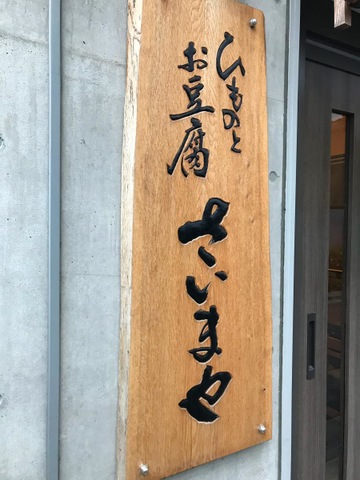 ひものと
お豆腐
さいまや